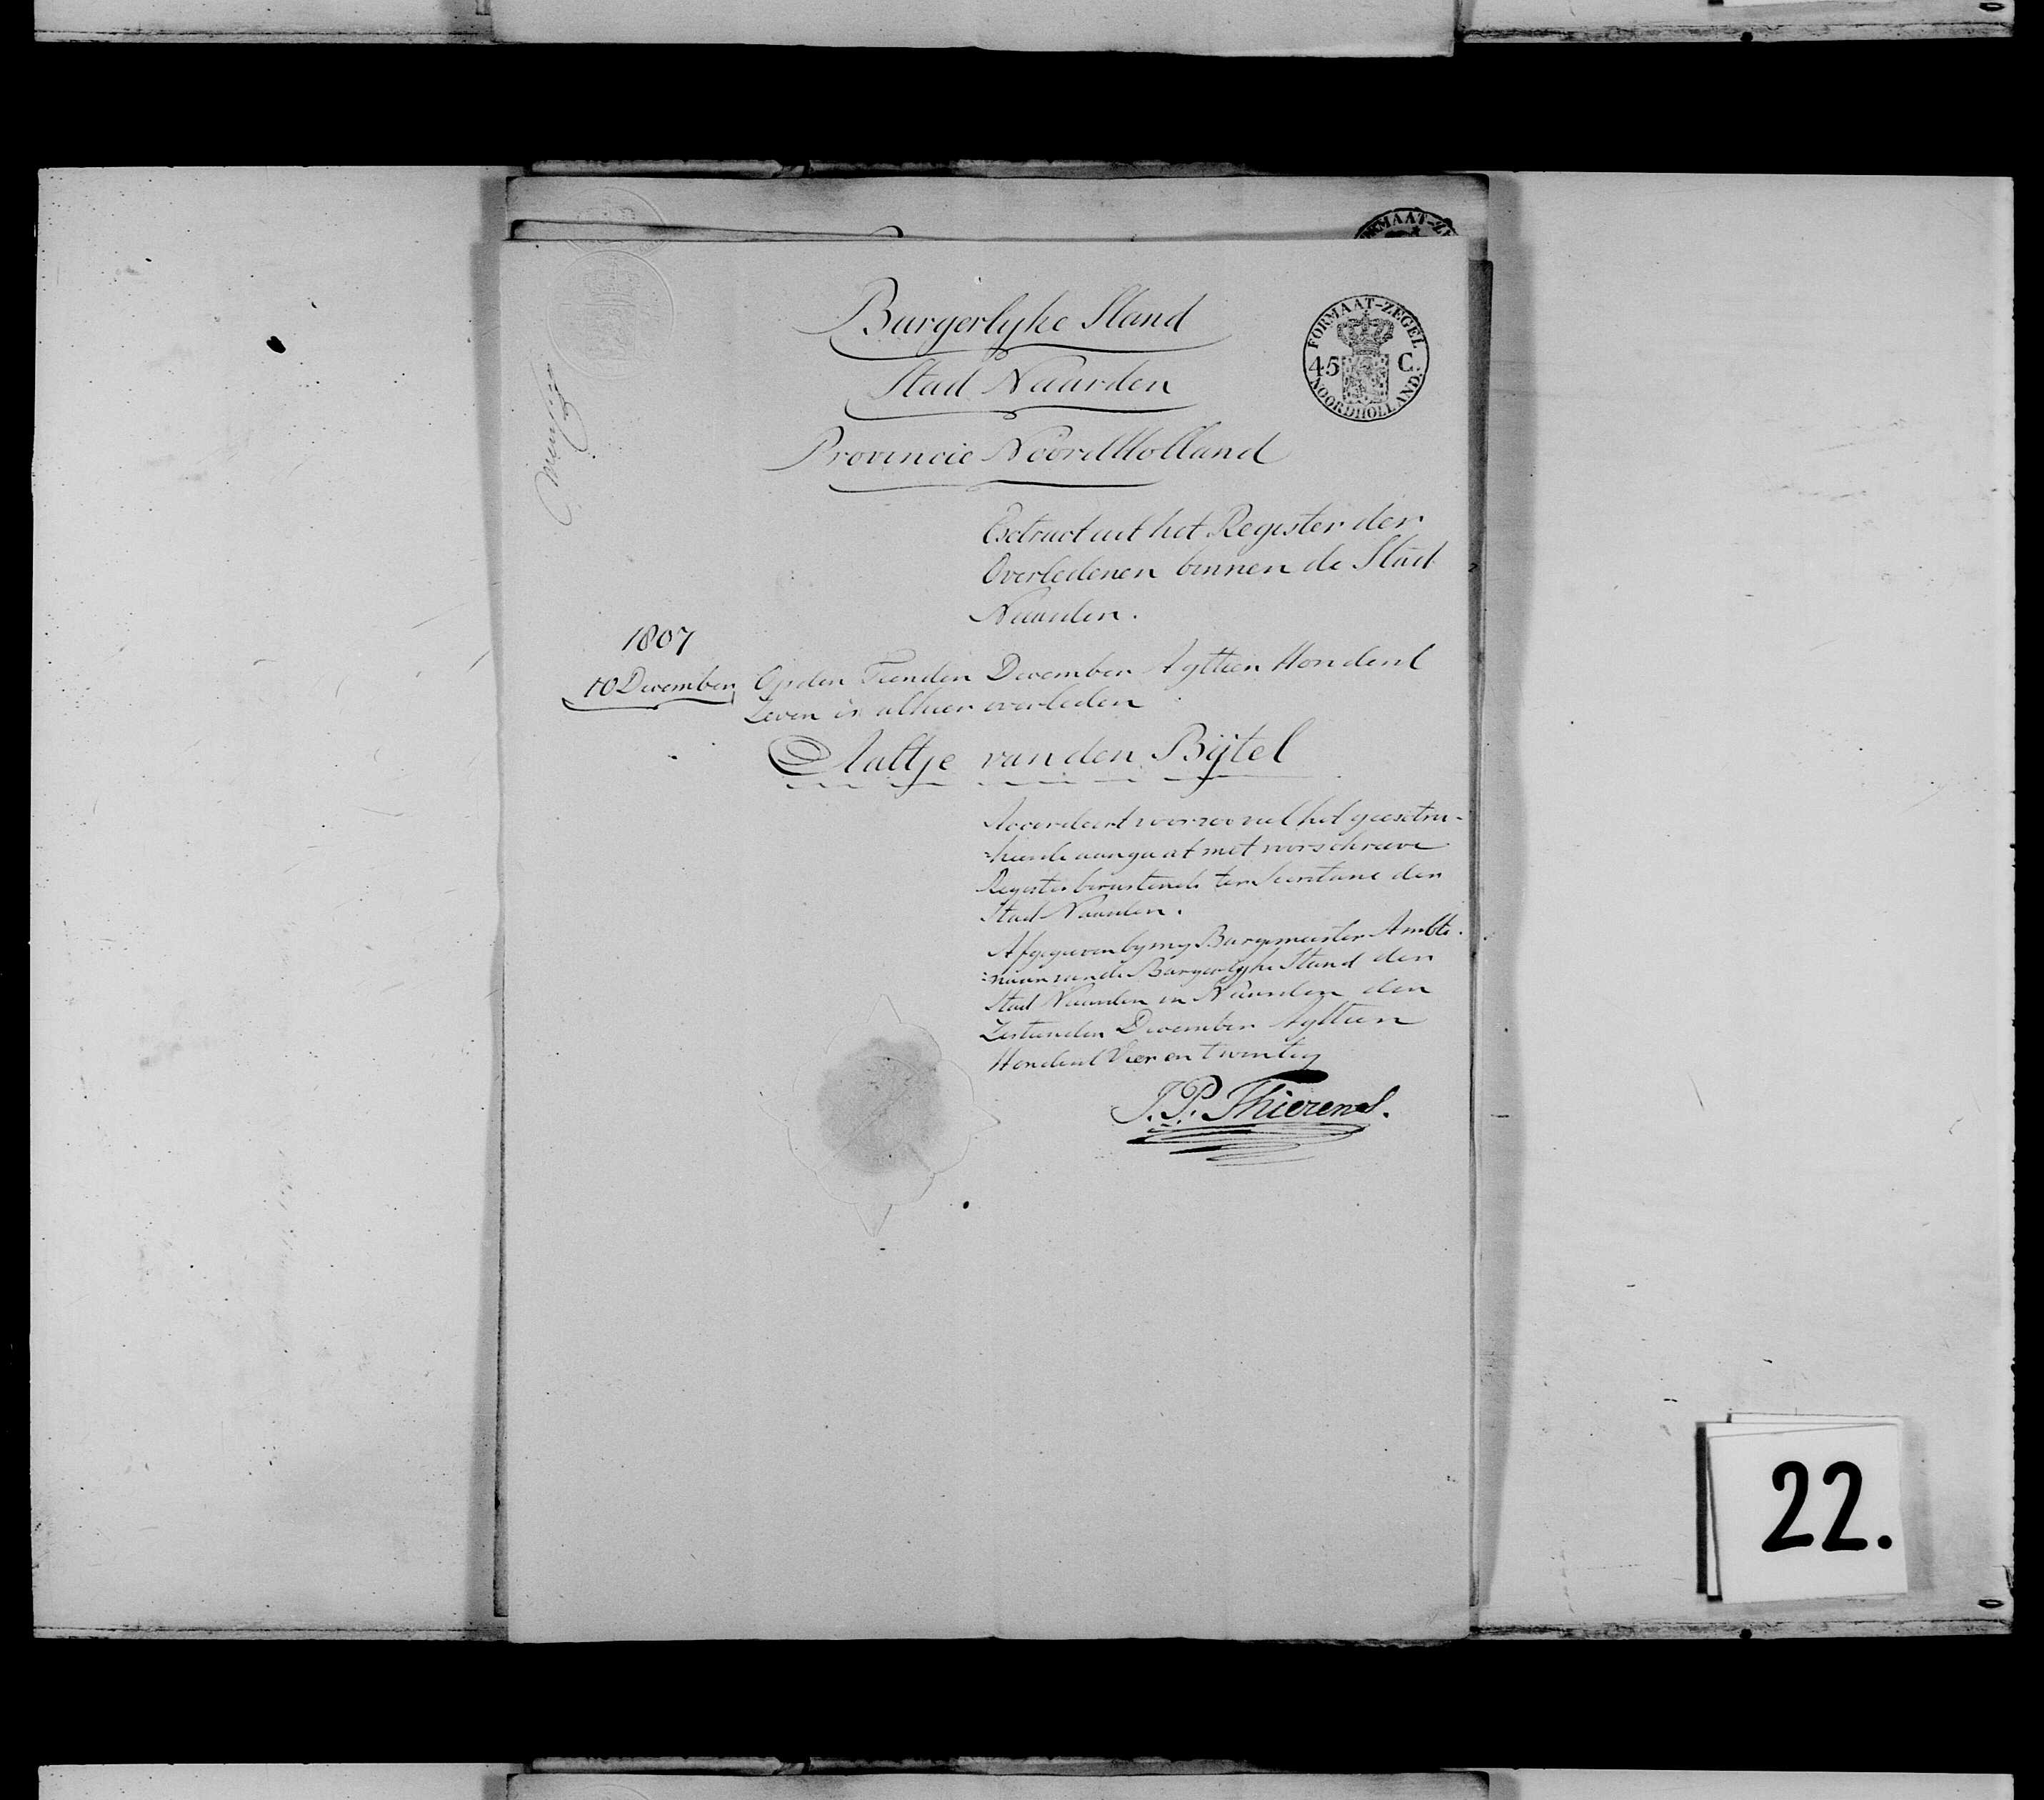 Burgerlyke Stand
Stad Naarden
Provincie Noord Holland
FORMAAT-ZEGEL
45 C.
NOORDHOLLAND.
Extract uit het Register der
Overledenen binnen de Stad
Naarden.
1807
10 December
Op den Tienden December Agttien Hondert
Zeven is alhier overleden
Aaltje van den Bijtel
Accordeert voor zoo veel het geextra-
=heerde aangaat met voorschreeve
Register berustende ter Secretarie der
Stad Naarden.
Afgegeven by my Burgemeester Ambte-
=naar van de Burgerlyke Stand der
Stad Naarden in Naarden den
Zestienden December Agttien
Hondert Vier en twintig
J. P. Thierens.
22.